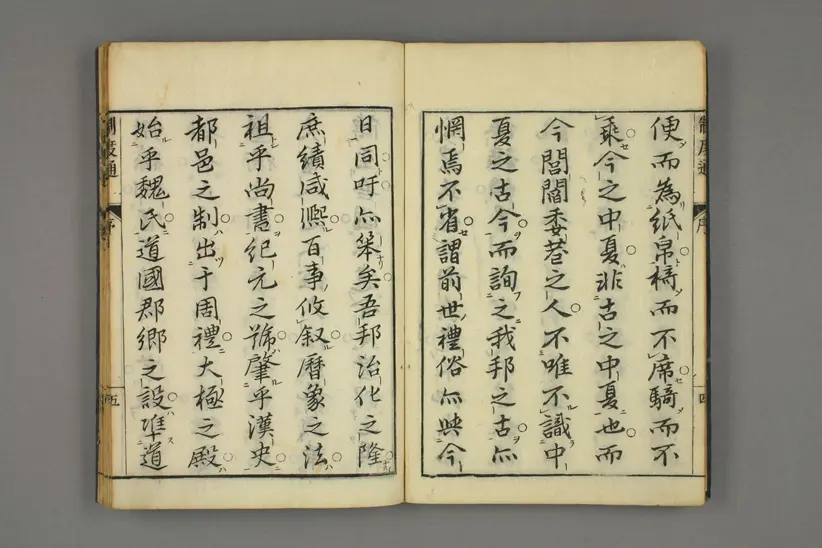 制度通 序 四
便而為紙帛椅而不席騎而不
乘今之中夏非古之中夏也而
今閭閻委巷之人不唯不識中
夏之古今而詢之我邦之古亦
惘焉不省謂前世禮俗亦與今
日同吁亦笨矣吾邦治化之隆
庶績咸熙百事攸叙曆象之法
祖乎尚書紀元之號肇乎漢史
都邑之制出于周禮大極之殿
始乎魏氏道國郡鄉之設準道
制度通 序 五